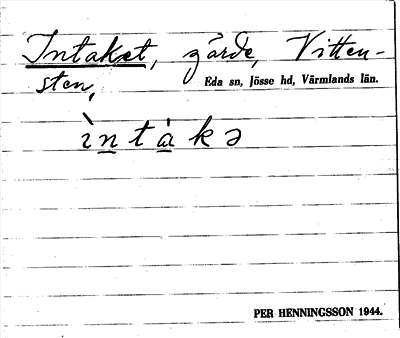 Intaket, gärde, Vitten-
sten,
Eda sn, Jösse hd, Värmlands län.
ìntákə
PER HENNINGSSON 1944.